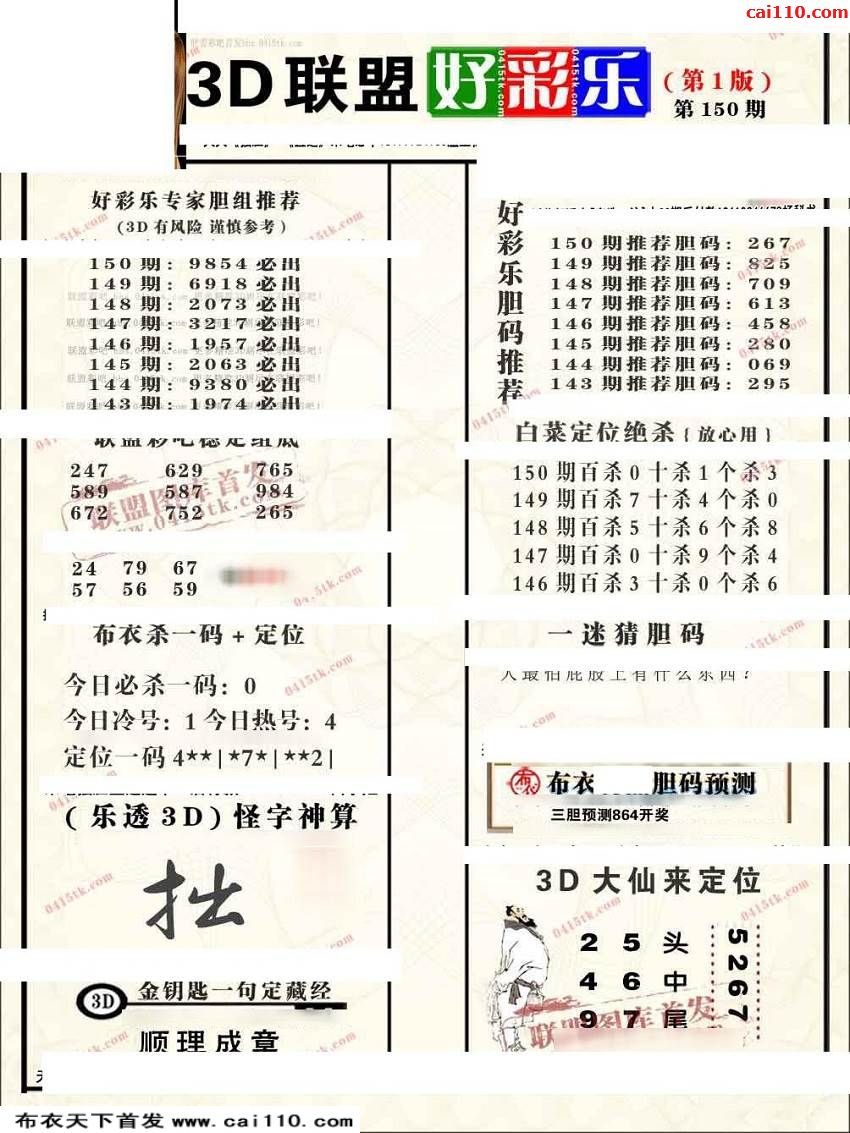 cai110.com
3D联盟好彩乐 (第1版)
第150期
好彩乐专家胆组推荐
(3D有风险 谨慎参考)
150期: 9854必出
149期: 6918必出
148期: 2073必出
147期: 3217必出
146期: 1957必出
145期: 2063必出
144期: 9380必出
143期: 1974必出
联盟彩吧稳定组底
247 629 765
589 587 984
672 752 265
联盟图库首发
www.0415tk.com
24 79 67
57 56 59
布衣杀一码+定位
今日必杀一码: 0
今日冷号: 1 今日热号: 4
定位一码 4**|*7*|**2|
(乐透3D)怪字神算
拙
3D 金钥匙一句定藏经
顺理成章
好彩乐胆码推荐
150期推荐胆码: 267
149期推荐胆码: 825
148期推荐胆码: 709
147期推荐胆码: 613
146期推荐胆码: 458
145期推荐胆码: 280
144期推荐胆码: 069
143期推荐胆码: 295
白菜定位绝杀{放心用}
150期百杀0十杀1个杀3
149期百杀7十杀4个杀0
148期百杀5十杀6个杀8
147期百杀0十杀9个杀4
146期百杀3十杀0个杀6
一迷猜胆码
人最怕屁股上有什么东西?
布衣 胆码预测
三胆预测864开奖
3D大仙来定位
2 5 头
4 6 中
9 7 尾
5267
联盟图库首发
布衣天下首发 www.cai110.com